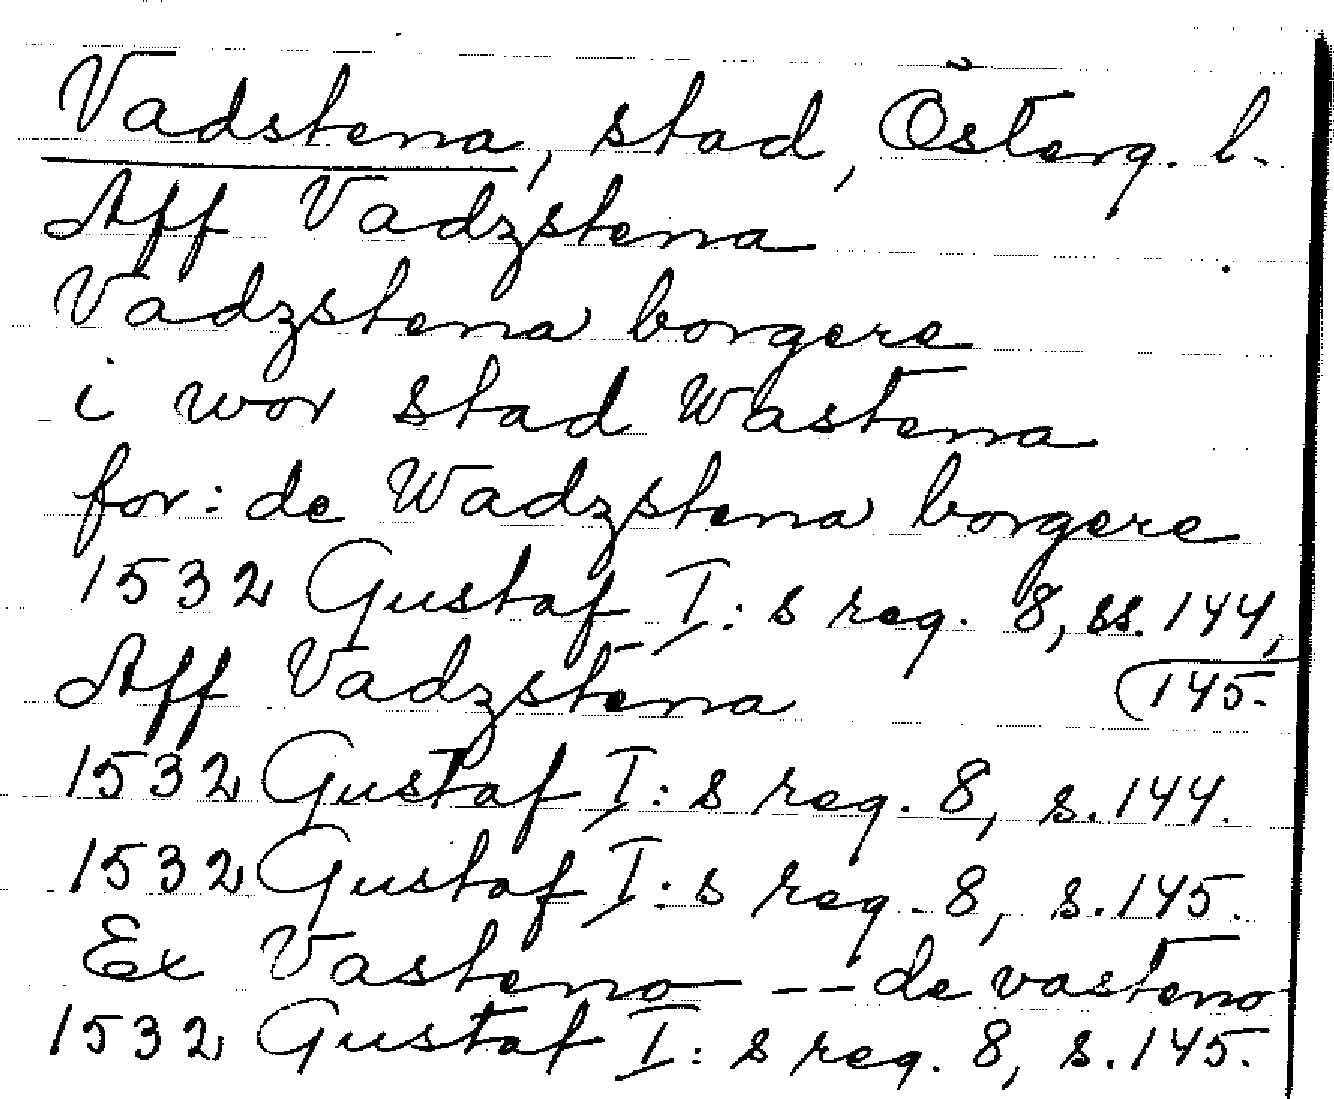 Vadstena, stad, Österg. l.
Aff Vadzstena
Vadzstena borgere
i wor stad Wastena
for: de Wadzstena borgere
1532 Gustaf I: s reg. 8, ss. 144,
145.
Aff Vadzstena
1532 Gustaf I: s reg. 8, s. 144.
1532 Gustaf I: s reg. 8, s. 145.
Ex Vasteno -- de vasteno
1532 Gustaf I: s reg. 8, s. 145.